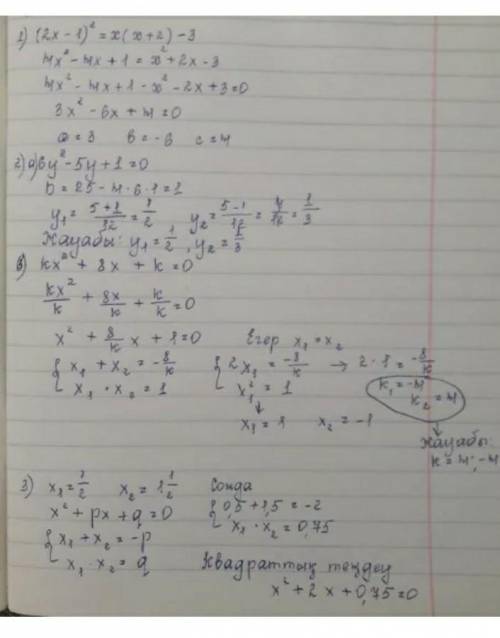 1) (2x-1)² = x(x+2) -3
4x² - 4x + 1 = x² + 2x - 3
4x² - 4x + 1 - x² - 2x + 3 = 0
3x² - 6x + 4 = 0
a = 3 b = -6 c = 4
2) а) 6y² - 5y + 1 = 0
D = 25 - 4·6·1 = 1
y₁ = 5+1/12 = 1/2 y₂ = 5-1/12 = 4/12 = 1/3
Жауабы: y₁ = 1/2, y₂ = 1/3
в) kx² + 8x + k = 0
kx²/k + 8x/k + k/k = 0
x² + 8/k x + 1 = 0 Егер x₁ = x₂
{ x₁ + x₂ = -8/k { 2x₁ = -8/k → 2·1 = -8/k
x₁ · x₂ = 1 x₁² = 1 k₁ = -4
k₂ = 4
↓ ↓
x₁ = 1 x₂ = -1 Жауабы:
k = 4; -4
3) x₁ = 1/2 x₂ = 1 1/2 Сонда
x² + px + q = 0 { 0,5 + 1,5 = -2
{ x₁ + x₂ = -p x₁ · x₂ = 0,75
x₁ · x₂ = q Квадраттық теңдеу
x² + 2x + 0,75 = 0